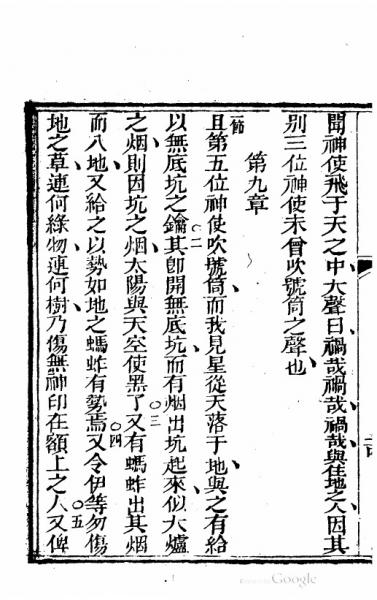 聞神使飛于天之中大聲曰禍哉禍哉禍哉與住地之人因其
別三位神使未曾吹號筒之聲也
第九章
一節 且第五位神使吹號筒而我見星從天落于地與之有給
以無底坑之鑰○二其卽開無底坑而有烟出坑起來似大爐
之烟則因坑之烟太陽與天空使黑了○三又有螞蚱出其烟
而入地又給之以勢如地之螞蚱有勢焉○四又令伊等勿傷
地之草連何綠物連何樹乃傷無神印在額上之人○五又俾
Google